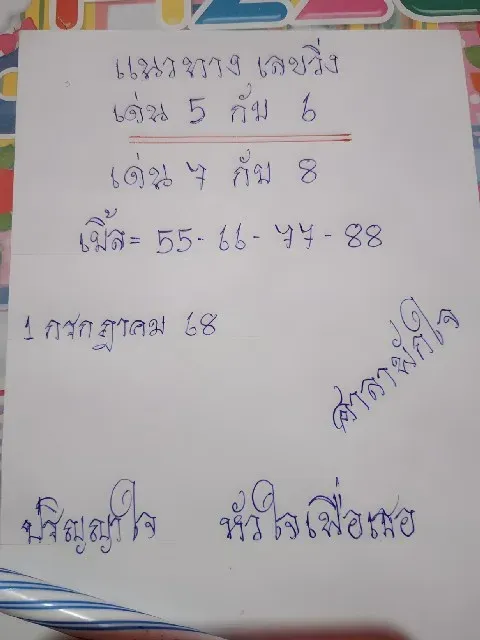 แนวทาง เลขวิ่ง
เด่น 5 กับ 6
เด่น 7 กับ 8
เบิ้ล = 55 - 66 - 77 - 88
1 กรกฎาคม 68
ศาลาพักใจ
ปริญญาใจ หัวใจเพื่อเธอ